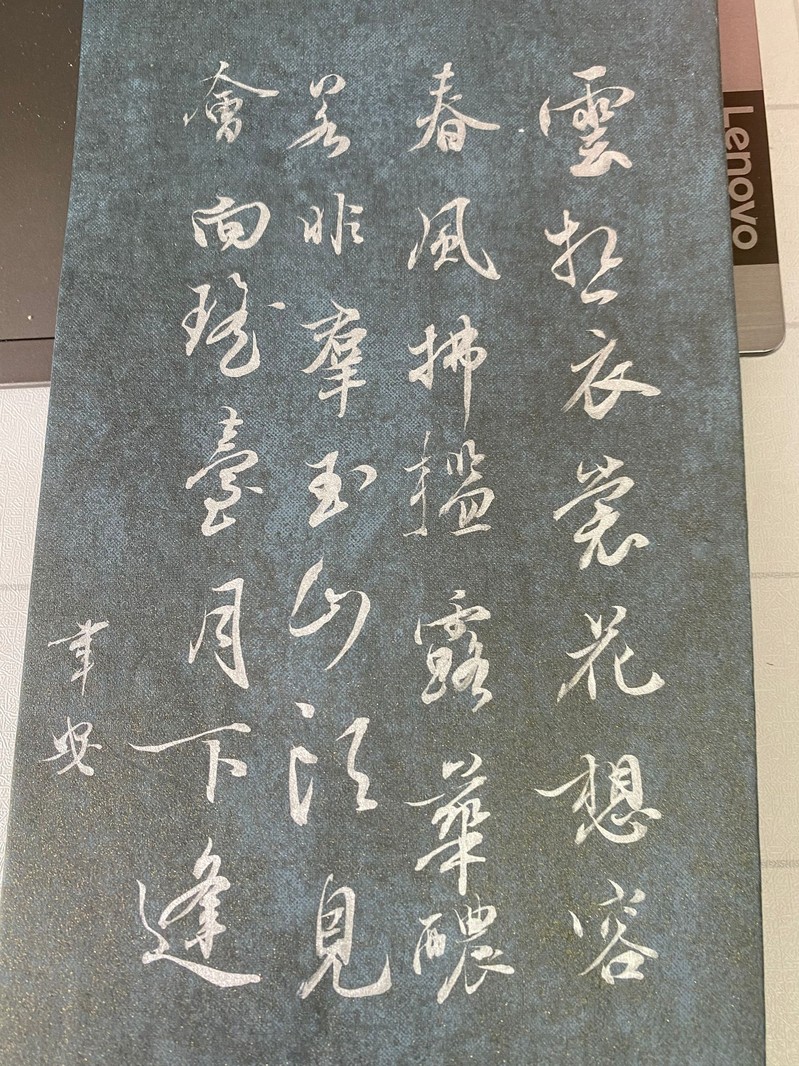 雲想衣裳花想容
春風拂檻露華醲
若非羣玉山頭見
會向瑤臺月下逢
安
Lenovo